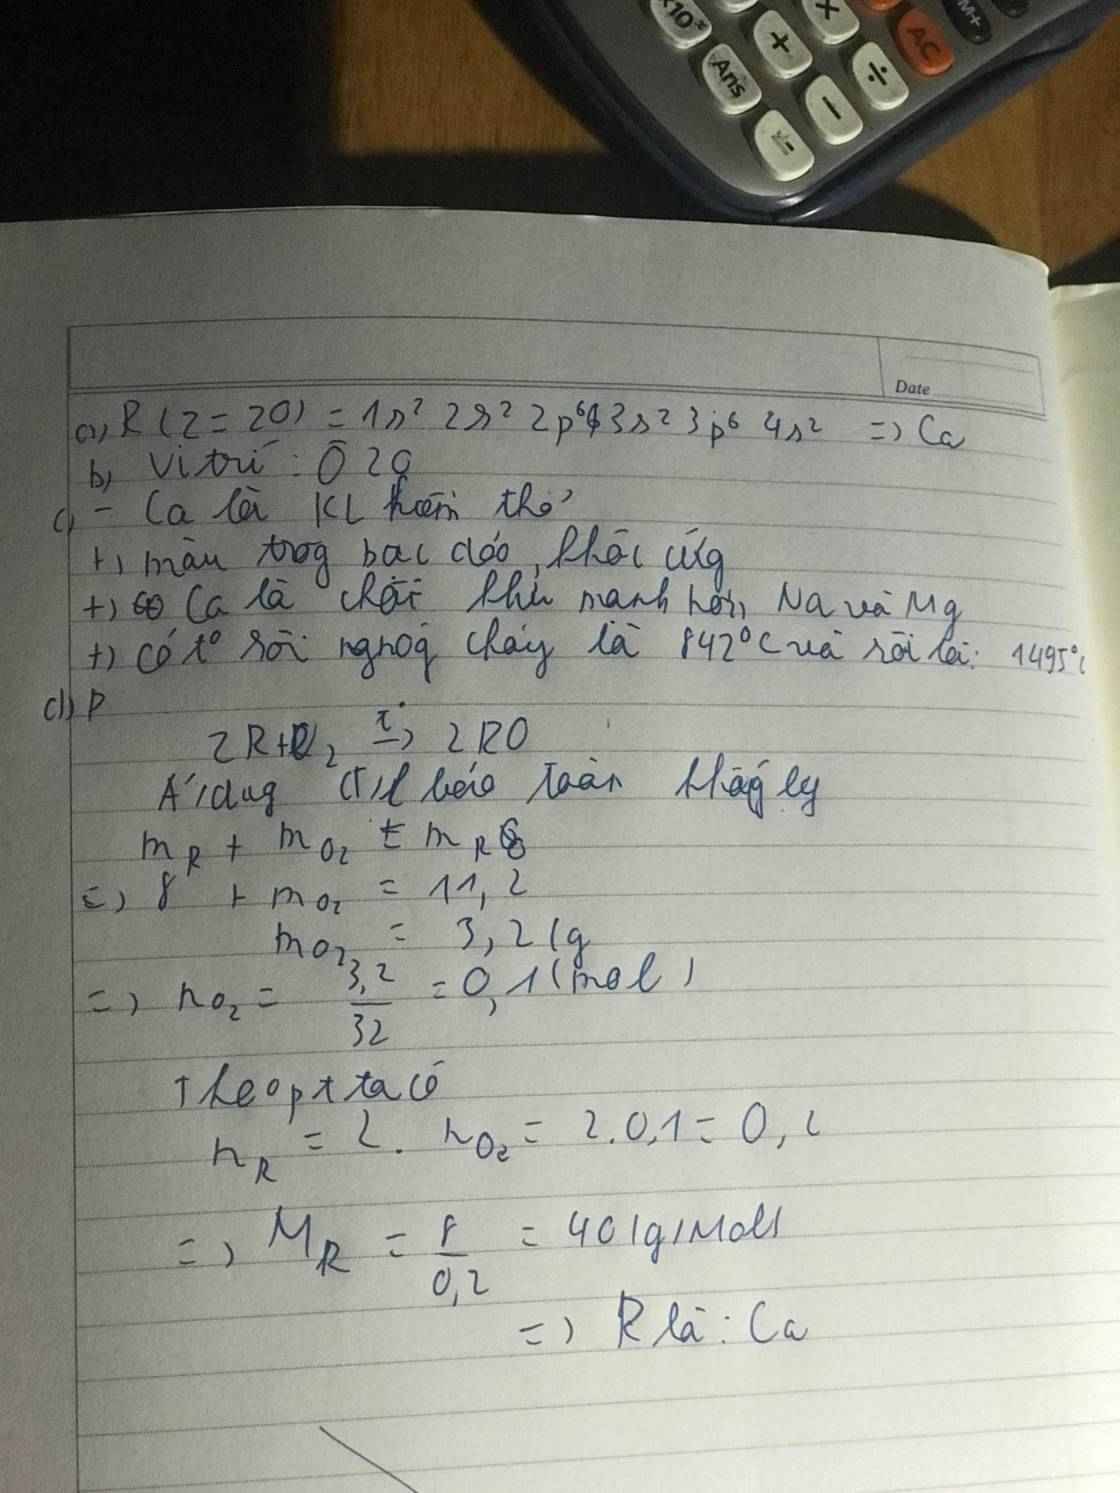 x10ˣ
+
×
M+
AC
Ans
−
÷
Date
a, R (Z = 20) = 1s² 2s² 2p⁶ 3s² 3p⁶ 4s² => Ca
b, Vị trí : Ô 20
c, - Ca là KL kiềm thổ
+, màu trắg bạc dẻo, khối cứg
+, Ca là chất khử mạnh hơn Na và Mg
+, có t° sôi ngnóg chảy là 842°C và sôi là: 1495°C
d, P
2R + O₂ t°→ 2RO
Á/dug CT/l bảo toàn khlượg
m R + m O₂ = m RO
=> 8 + m O₂ = 11,2
m O₂ = 3,2 (g
=> n O₂ = 3,2/32 = 0,1 (mol)
Theo pt ta có
n R = 2. n O₂ = 2.0,1 = 0,2
=> M R = 8/0,2 = 40 (g/mol)
=> R là : Ca